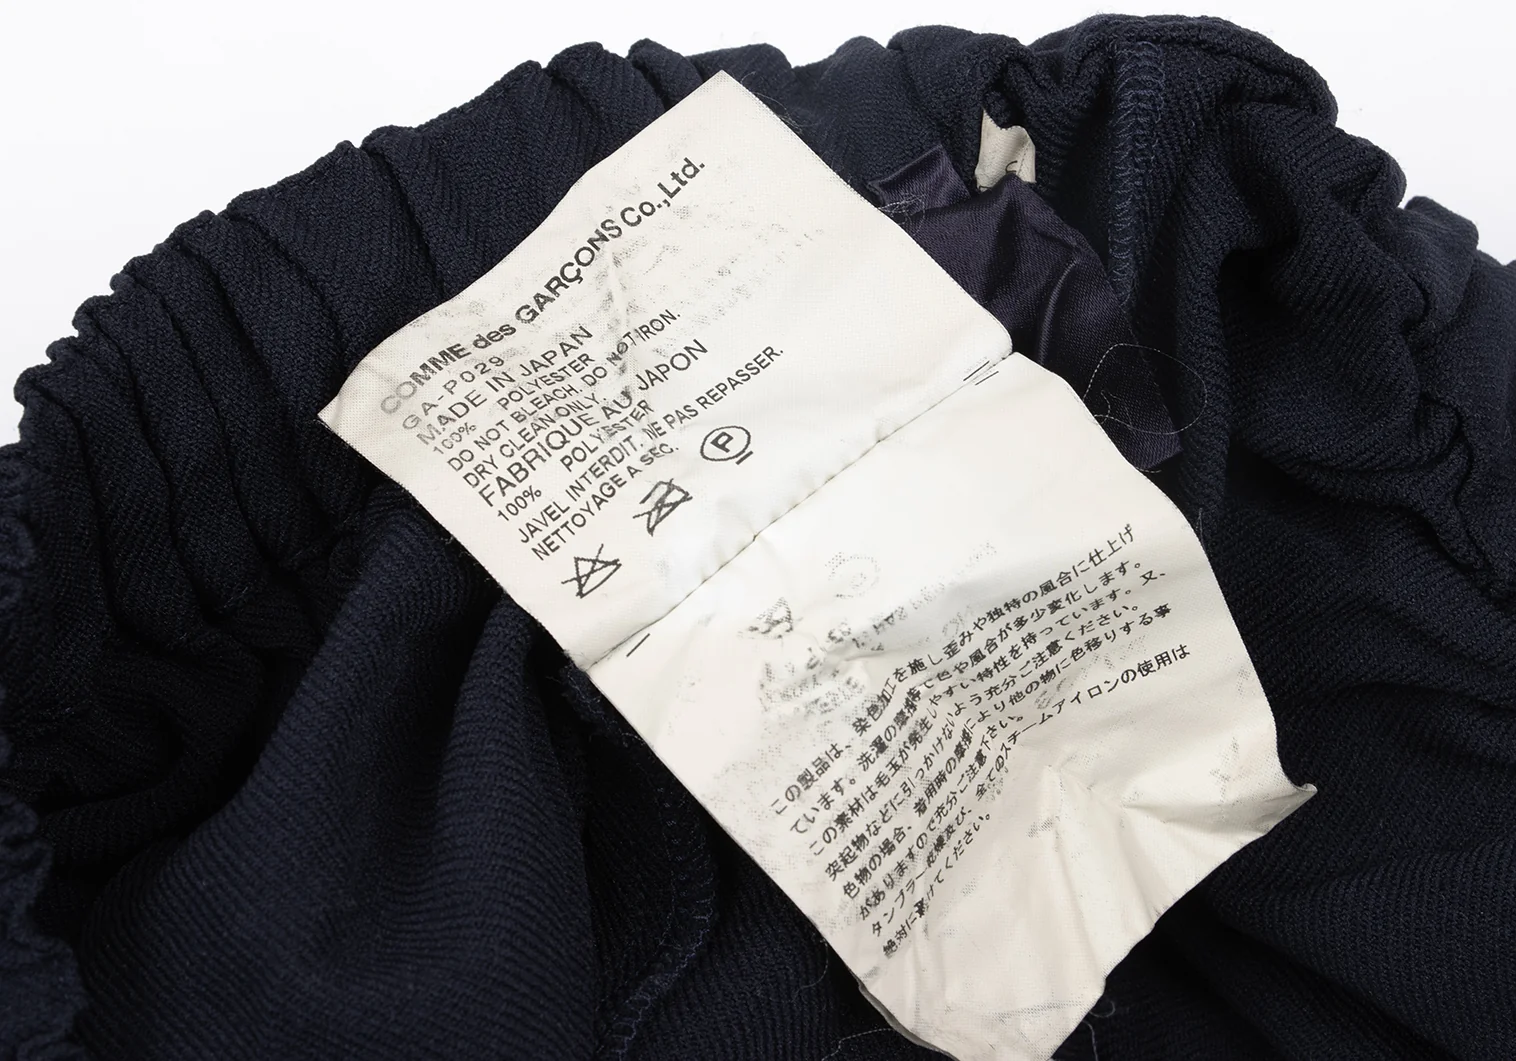 COMME des GARÇONS Co.,Ltd.
GA-P029
MADE IN JAPAN
100% POLYESTER
DO NOT BLEACH. DO NOT IRON.
DRY CLEAN ONLY.
FABRIQUE AU JAPON
100% POLYESTER
JAVEL INTERDIT. NE PAS REPASSER.
NETTOYAGE A SEC.
P
この製品は、染色加工を施し歪みや独特の風合に仕上げ
ています。洗濯の摩擦等で色や風合が多少変化します。
この素材は毛玉が発生しやすい特性を持っています。又、
突起物などに引っかけないよう充分ご注意ください。
色物の場合、着用時の摩擦により他の物に色移りする事
がありますので充分ご注意下さい。
タンブラー乾燥及び、全てのスチームアイロンの使用は
絶対に避けてください。